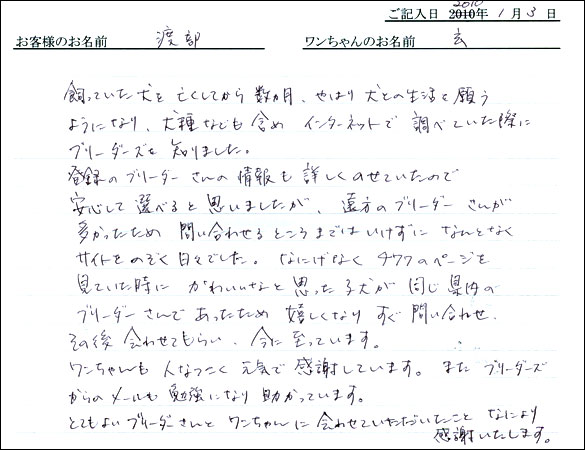 2010
ご記入日 2010年 1月3日
お客様のお名前 渡部 ワンちゃんのお名前 玄
飼っていた犬を亡くしてから数カ月、やはり犬との生活を願う
ようになり、犬種なども含め インターネットで 調べていた際に
ブリーダーズを知りました。
登録のブリーダーさんの情報も詳しくのせていたので
安心して選べると思いましたが、遠方のブリーダーさんが
多かったため 問い合わせるところまではいけずに なんとなく
サイトをのぞく日々でした。 なにげなく チワワのページを
見ていた時に かわいいなと思った子犬が 同じ県内の
ブリーダーさんであったため 嬉しくなり すぐ問い合わせ、
その後 会わせてもらい、今に至っています。
ワンちゃんも 人なつこく 元気で 感謝しています。 また ブリーダーズ
からのメールも勉強になり 助かっています。
とてもよいブリーダーさんと ワンちゃんに 会わせていただいたこと なにより
感謝いたします。